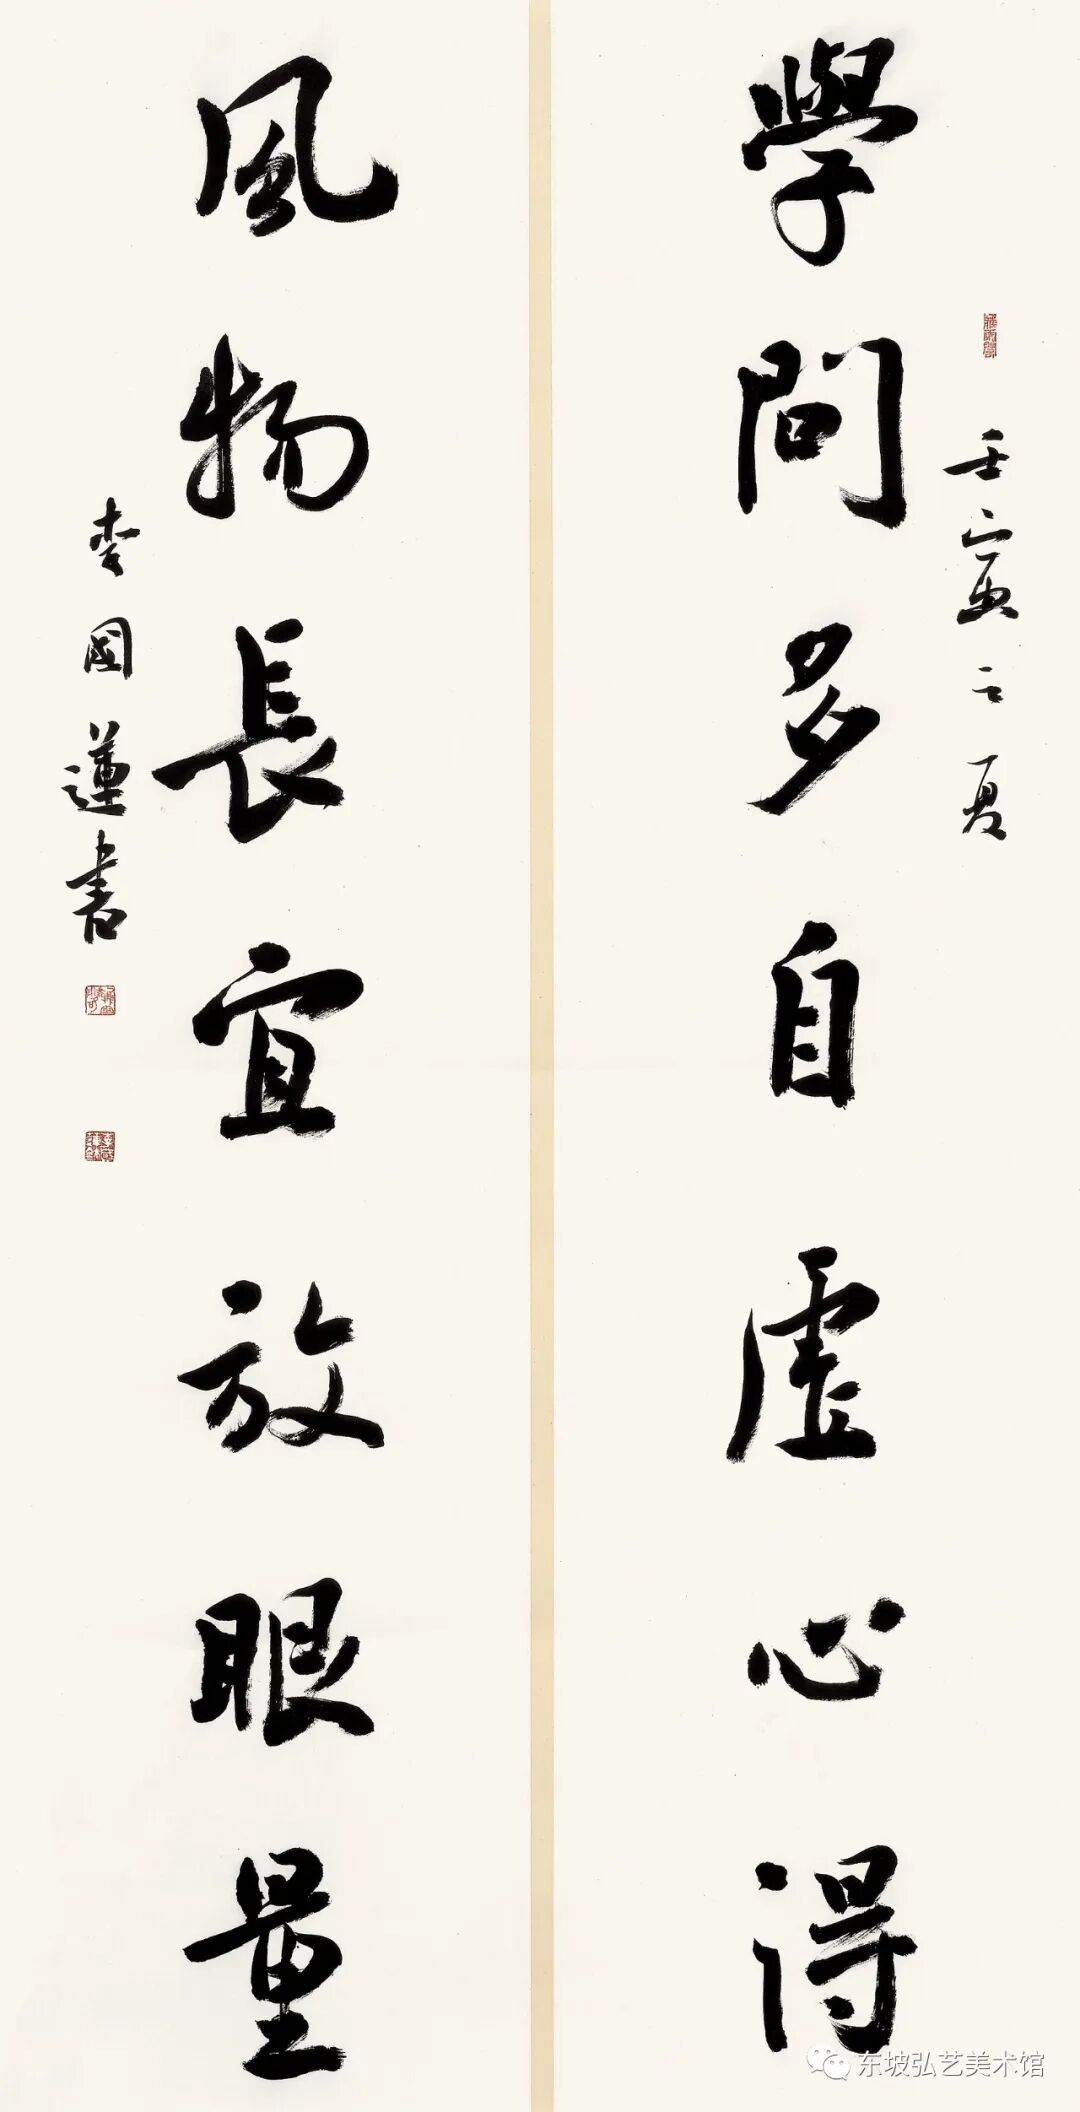 學問多自虛心得
壬寅之夏
風物長宜放眼量
李國蓮書
东坡弘艺美术馆